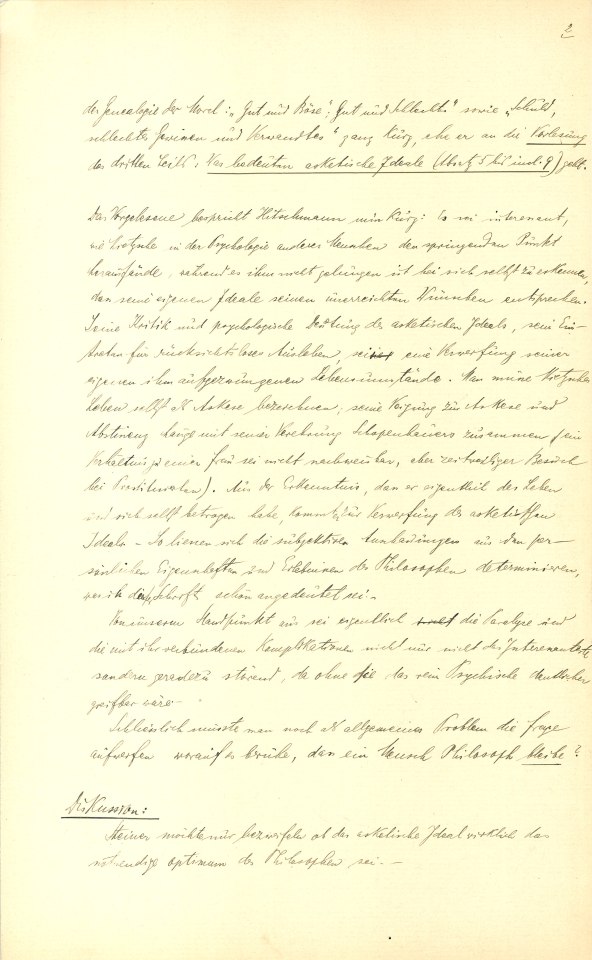 2
der Genealogie der Moral: „Gut und Böse“, „Gut und Schlecht“ sowie „Schuld,
schlechtes Gewissen und Verwandtes“ ganz kurz, ehe er an die Vorlesung
des dritten Teils: Was bedeuten asketische Ideale (Absatz 5 bis incl. 9) geht.
Das Vorgelesene bespricht Hitschmann nun kurz: Es sei interessant,
wie Nietzsche in der Psychologie anderer Menschen den springenden Punkt
herausfände, während es ihm nicht gelungen ist bei sich selbst zu erkennen,
dass seine eigenen Ideale seinen unerreichten Wünschen entsprechen.
Seine Kritik und psychologische Deutung des asketischen Ideals, sein Ein-
treten für rücksichtsloses Ausleben, sei eine Verwerfung seiner
eigenen ihm aufgezwungenen Lebensumstände. Man müsse Nietzsches
Leben selbst als Askese bezeichnen; seine Neigung zur Askese und
Abstinenz hänge mit seiner Verehrung Schopenhauers zusammen (ein
Verhältnis zu einer Frau sei nicht nachweisbar, aber zeitweiliger Besuch
bei Prostituierten). Aus der Erkenntnis, dass er eigentlich das Leben
und sich selbst betrogen habe, komme er zur Verwerfung des asketischen
Ideals – So liessen sich die subjektiven Anschauungen aus den per-
sönlichen Eigenschaften und Erlebnissen des Philosophen determinieren,
was in der Schrift schon angedeutet sei. –
Von unserem Standpunkt aus sei eigentlich die Paralyse und
die mit ihr verbundenen Komplikationen nicht nur nicht das Interessanteste
sondern geradezu störend, da ohne sie das rein Psychische deutlicher
greifbar wäre –
Schliesslich müsste man noch als allgemeines Problem die Frage
aufwerfen worauf es beruhe, dass ein Mensch Philosoph bleibe?
Diskussion:
Steiner möchte nur bezweifeln ob das asketische Ideal wirklich das
notwendige optimum des Philosophen sei. –